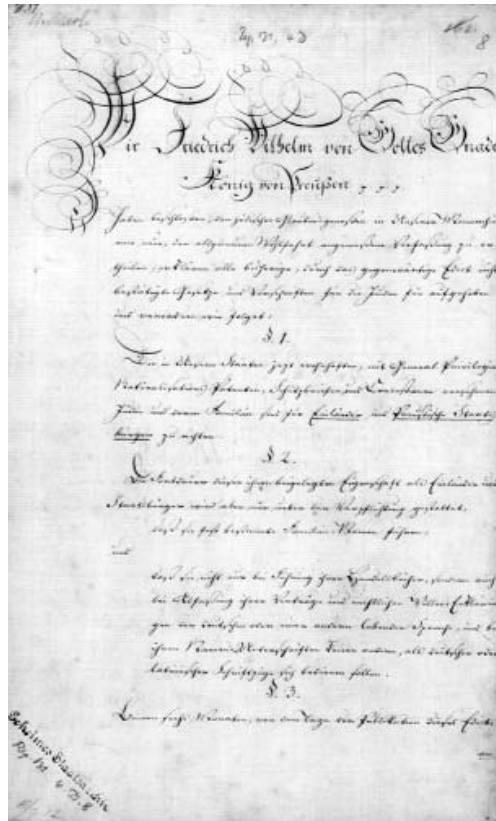 Wir Friedrich Wilhelm von Gottes Gnaden
König von Preußen
haben beschlossen, den jüdischen Glaubensgenossen in Unserer Monarchie
eine neue, der allgemeinen Wohlfahrt angemessene Verfassung zu er-
theilen, erklären alle bisherige, durch das gegenwärtige Edict nicht
bestätigte Gesetze und Vorschriften für die Juden für aufgehoben
und verordnen wie folget:
§ 1.
Die in Unsern Staaten jetzt wohnhaften, mit General-Privilegien
Naturalisations-Patenten, Schutzbriefen und Concessionen versehenen
Juden und deren Familien sind für Einländer und Preußische Staats-
bürger zu achten.
§ 2.
Die Fortdauer dieser ihnen beigelegten Eigenschaft als Einländer und
Staatsbürger wird aber nur unter der Verpflichtung gestattet:
daß sie fest bestimmte Familien-Namen führen,
und
daß sie nicht nur bei Führung ihrer Handelsbücher, sondern auch
bei Abfassung ihrer Verträge und rechtlichen Willens-Erklärun-
gen der deutschen oder einer andern lebenden Sprache, und bei
ihren Namens-Unterschriften keiner andern, als deutscher oder
lateinischer Schriftzüge sich bedienen sollen.
§ 3.
Binnen sechs Monaten, von dem Tage der Publikation dieses Edicts